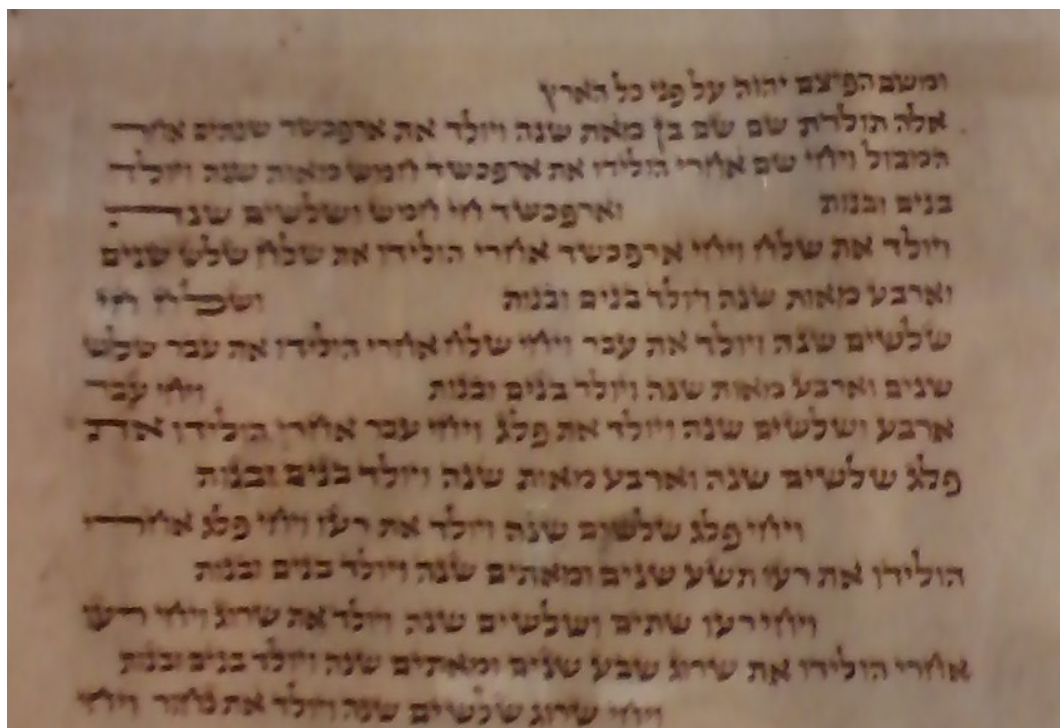 ומשם הפיצם יהוה על פני כל הארץ
אלה תולדת שם שם בן מאת שנה ויולד את ארפכשד שנתים אחר
המבול ויחי שם אחרי הולידו את ארפכשד חמש מאות שנה ויולד
בנים ובנות וארפכשד חי חמש ושלשים שנה
ויולד את שלח ויחי ארפכשד אחרי הולידו את שלח שלש שנים
וארבע מאות שנה ויולד בנים ובנות ושלח חי
שלשים שנה ויולד את עבר ויחי שלח אחרי הולידו את עבר שלש
שנים וארבע מאות שנה ויולד בנים ובנות ויחי עבר
ארבע ושלשים שנה ויולד את פלג ויחי עבר אחרי הולידו את
פלג שלשים שנה וארבע מאות שנה ויולד בנים ובנות
ויחי פלג שלשים שנה ויולד את רעו ויחי פלג אחרי
הולידו את רעו תשע שנים ומאתים שנה ויולד בנים ובנות
ויחי רעו שתים ושלשים שנה ויולד את שרוג ויחי רעו
אחרי הולידו את שרוג שבע שנים ומאתים שנה ויולד בנים ובנות
ויחי שרוג שלשים שנה ויולד את נחור ויחי